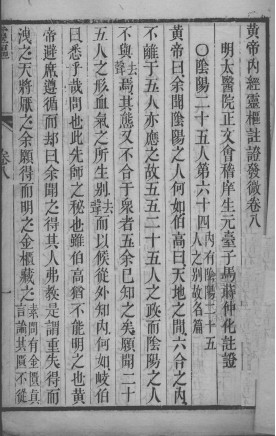 黃帝內經靈樞註證發微卷八
明太醫院正文會稽庠生元臺子馬蒔仲化註證
○陰陽二十五人第六十四內有陰陽二十五人之別故名篇
黃帝曰余聞陰陽之人何如伯高曰天地之間六合之內
不離于五人亦應之故五五二十五人之政而陰陽之人
不與去聲焉其態又不合于衆者五余已知之矣願聞二十
五人之形血氣之所生別去聲而以候從外知內何如岐伯
曰悉乎哉問也此先師之秘也雖伯高猶不能明之也黃
帝避席遵循而却曰余聞之得其人弗教是謂重失得而
洩之天將厭之余願得而明之金櫃藏之素問有金匱真言論其匱不從
卷八
一